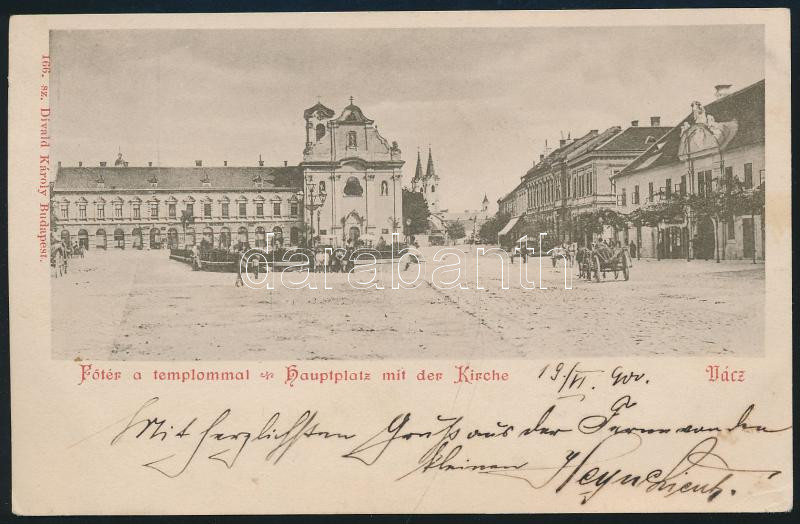 166. sz. Divald Károly Budapest.
darabanth
Főtér a templommal Hauptplatz mit der Kirche
Vácz
19/VI. 900.
Mit herzlichsten Gruß aus der Ferne von den
kleinen